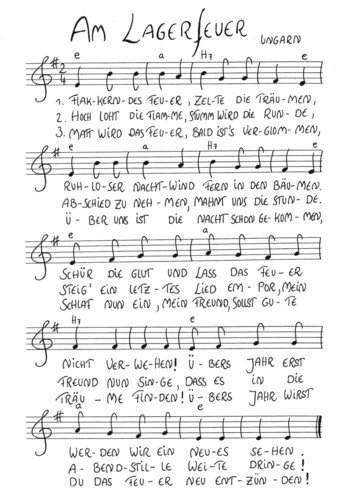 AM LAGERFEUER
UNGARN
e a H7 e
2
4
1. FLAK-KERN-DES FEU-ER, ZEL-TE DIE TRÄU-MEN,
2. HOCH LOHT DIE FLAM-ME, STUMM WIRD DIE RUN-DE,
3. MATT WIRD DAS FEU-ER, BALD IST'S VER-GLOM-MEN,
e a H7 e
RUH-LO-SER NACHT-WIND FERN IN DEN BÄU-MEN.
AB-SCHIED ZU NEH-MEN, MAHNT UNS DIE STUN-DE.
Ü-BER UNS IST DIE NACHT SCHON GE-KOM-MEN,
SCHÜR DIE GLUT UND LASS DAS FEU-ER
STEIG' EIN LETZ-TES LIED EM-POR, MEIN
SCHLAF NUN EIN, MEIN FREUND, SOLLST GU-TE
H7 e
NICHT VER-WE-HEN! Ü-BERS JAHR ERST
FREUND NUN SIN-GE, DASS ES IN DIE
TRÄU-ME FIN-DEN! Ü-BERS JAHR WIRST
a e
WER-DEN WIR EIN NEU-ES SE-HEN.
A-BEND-STIL-LE WEI-TE DRIN-GE!
DU DAS FEU-ER NEU ENT-ZÜN-DEN!